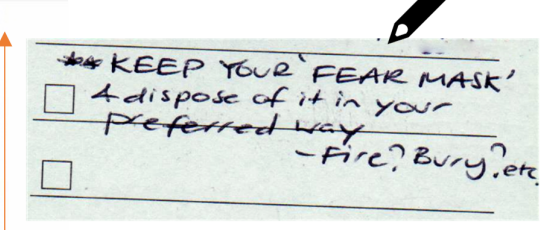 ** KEEP YOUR 'FEAR MASK'
& dispose of it in your
preferred way
- Fire? Bury? etc.